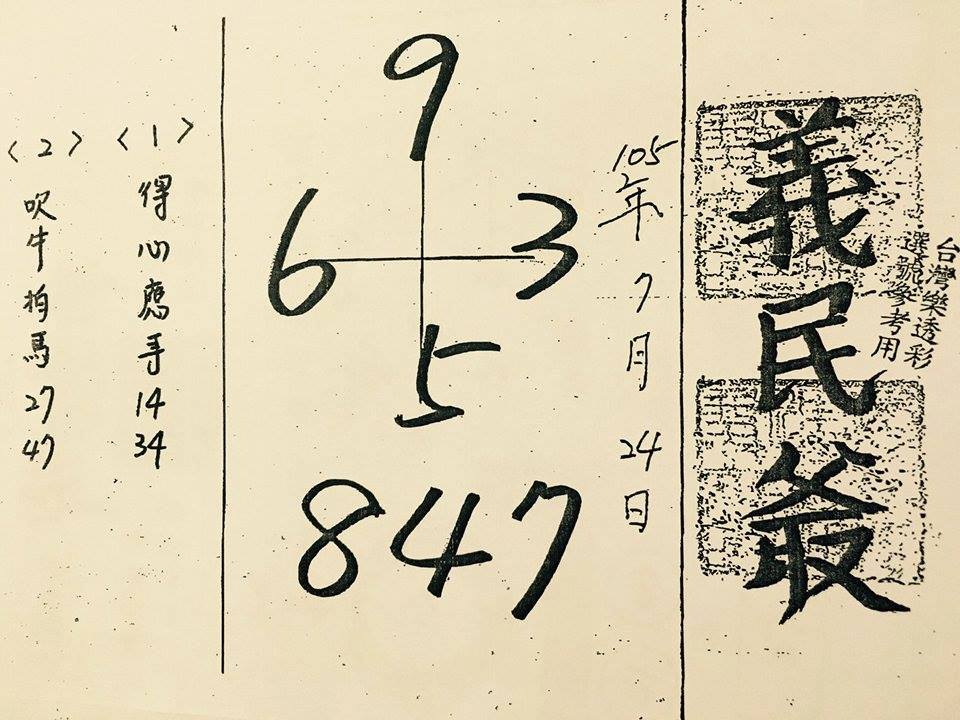 台灣樂透彩
選號參考用
義民爺
105年7月24日
9
6 3
5
847
〈1〉得心應手 14 34
〈2〉吹牛拍馬 27 47